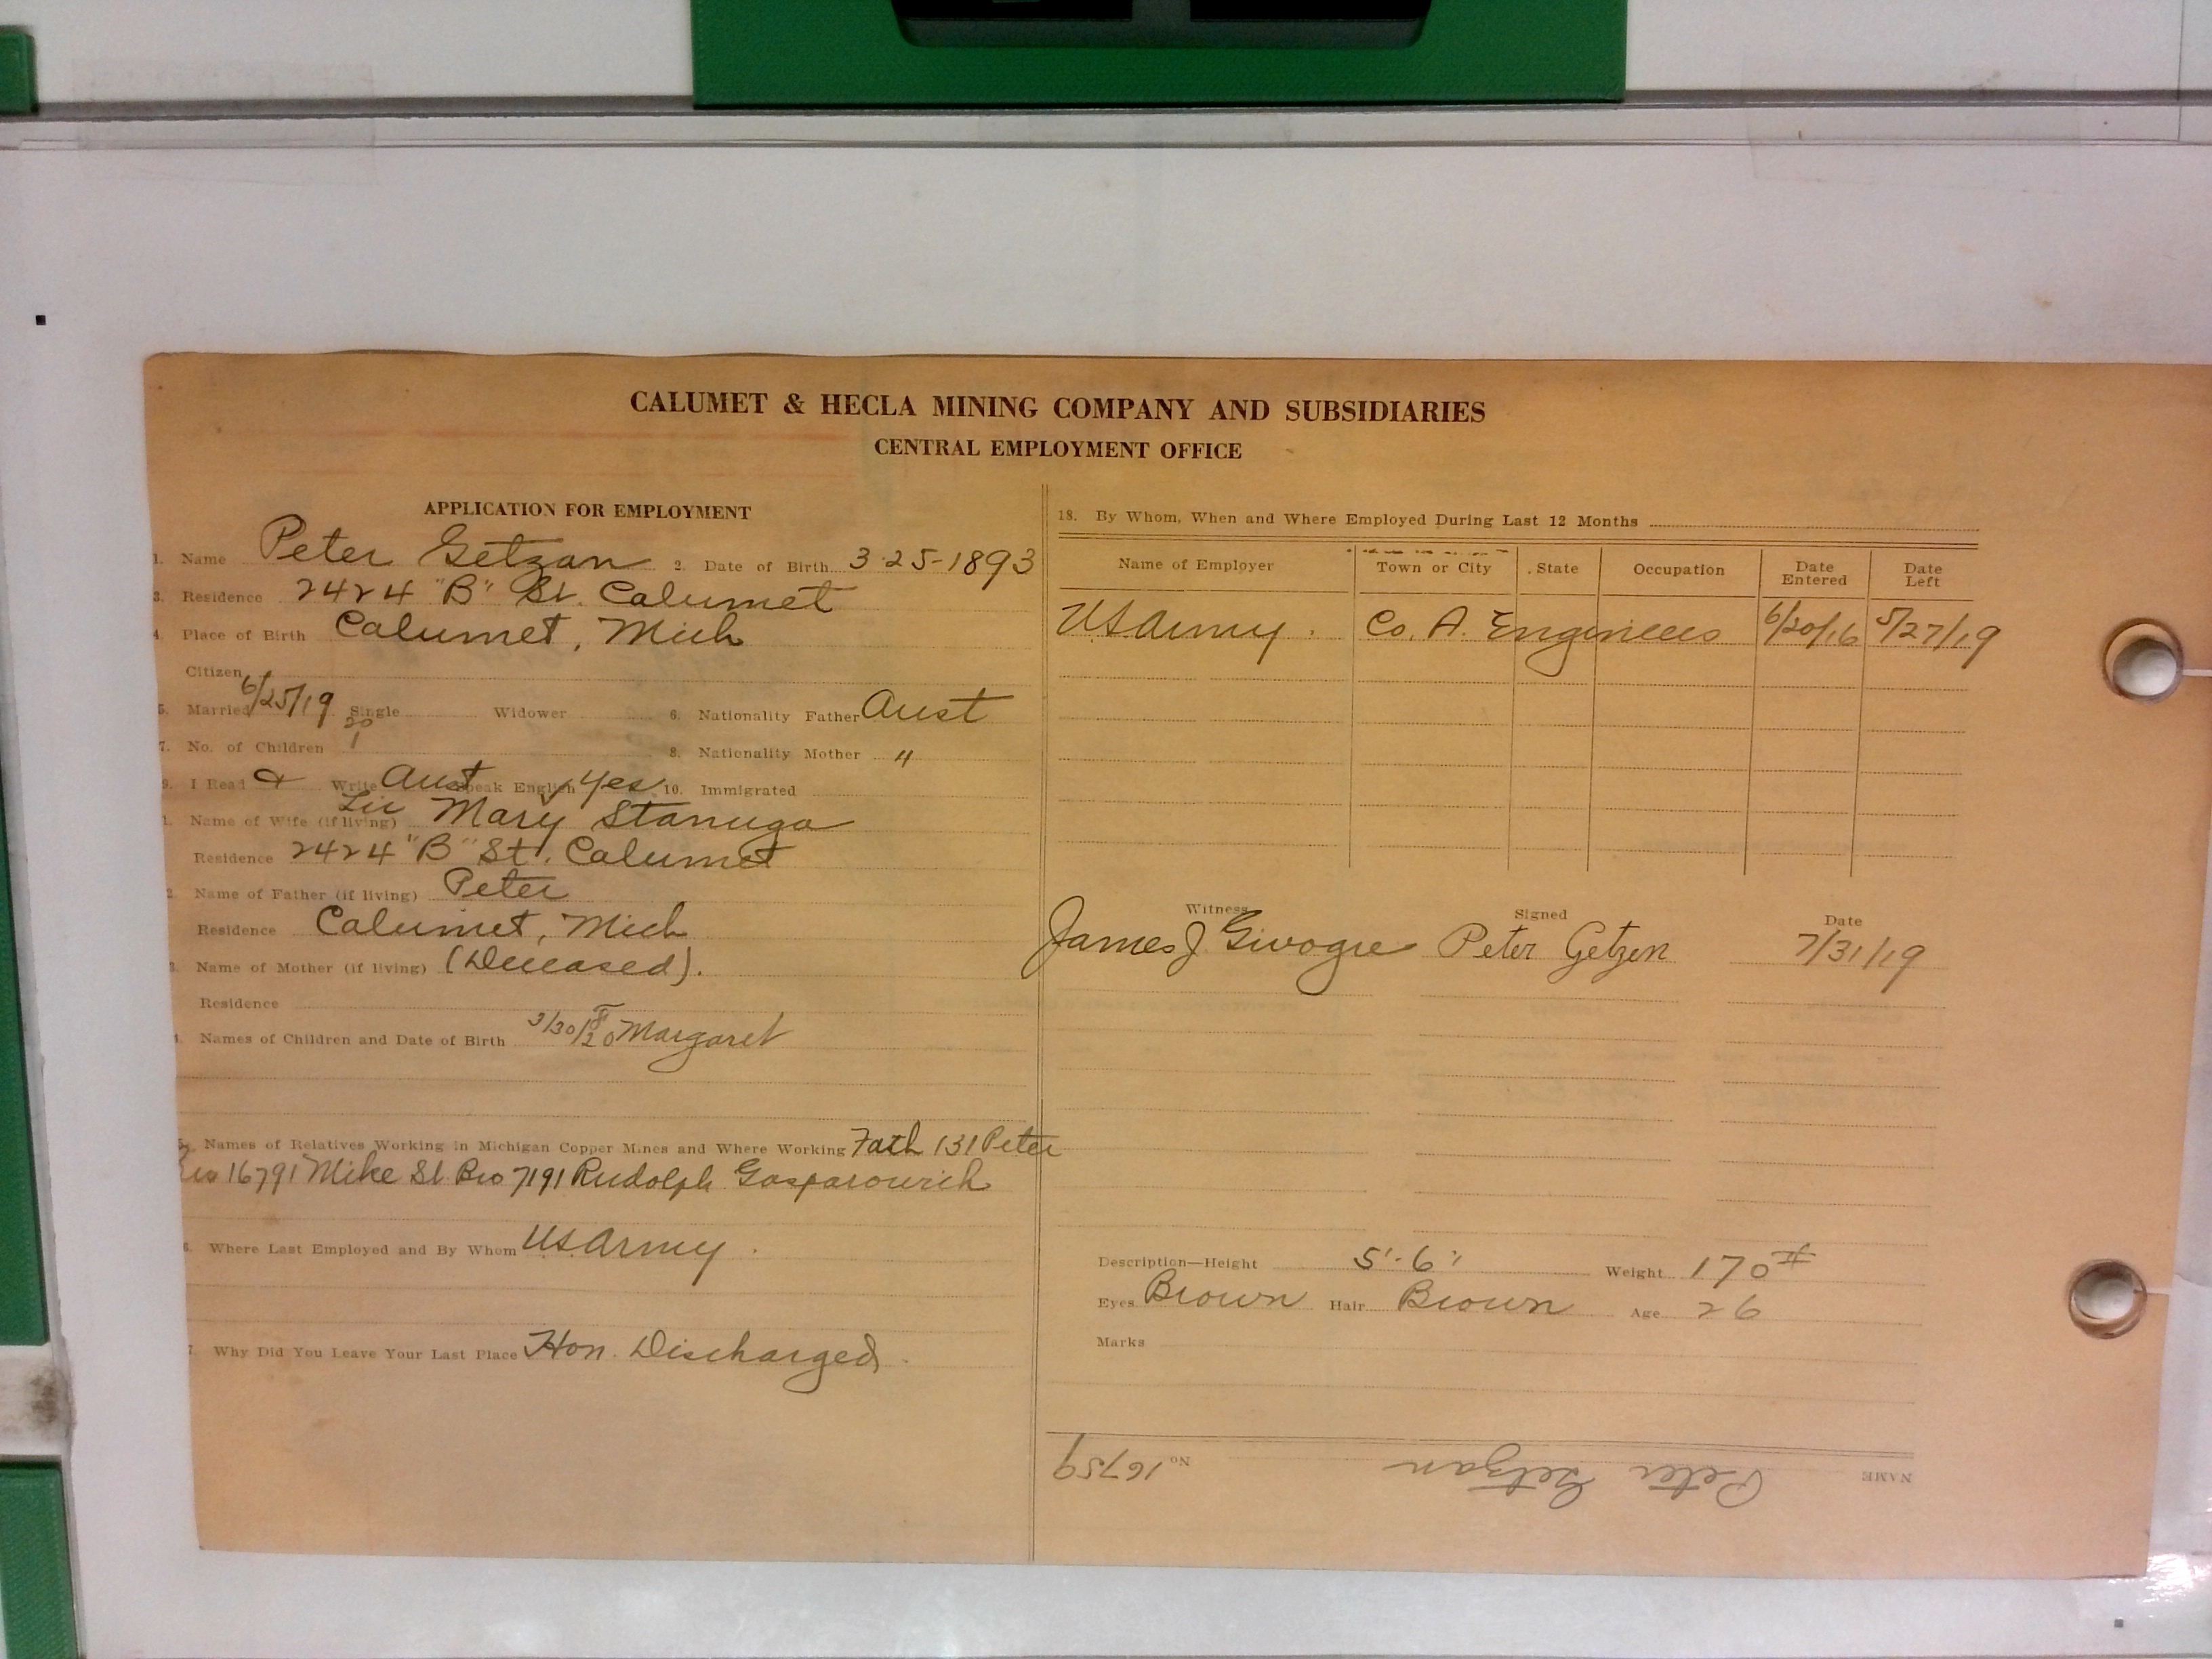 CALUMET & HECLA MINING COMPANY AND SUBSIDIARIES
CENTRAL EMPLOYMENT OFFICE
APPLICATION FOR EMPLOYMENT
1. Name Peter Getzan 2. Date of Birth 3-25-1893
3. Residence 2424 "B" St. Calumet
4. Place of Birth Calumet, Mich
Citizen
5. Married 6/25/19 Single Widower 6. Nationality Father Aust
7. No. of Children 1 8. Nationality Mother "
9. I Read & Write Aust Speak English Yes 10. Immigrated
1. Name of Wife (if living) Mary Stanuga
Residence 2424 "B" St. Calumet
2. Name of Father (if living) Peter
Residence Calumet, Mich
3. Name of Mother (if living) (Deceased).
Residence
4. Names of Children and Date of Birth 3/30/20 Margaret
5. Names of Relatives Working in Michigan Copper Mines and Where Working Fath 131 Peter
16791 Mike St Bro 7191 Rudolph Gasparowich
6. Where Last Employed and By Whom US Army.
7. Why Did You Leave Your Last Place Hon. Discharged.
18. By Whom, When and Where Employed During Last 12 Months
Name of Employer Town or City State Occupation Date Entered Date Left
US Army. Co. A. Engineers 6/20/16 5/27/19
Witness Signed Date
James J Givogre Peter Getzen 7/31/19
Description—Height 5'-6" Weight 170#
Eyes Brown Hair Brown Age 26
Marks
NAME Peter Getzan No 16759